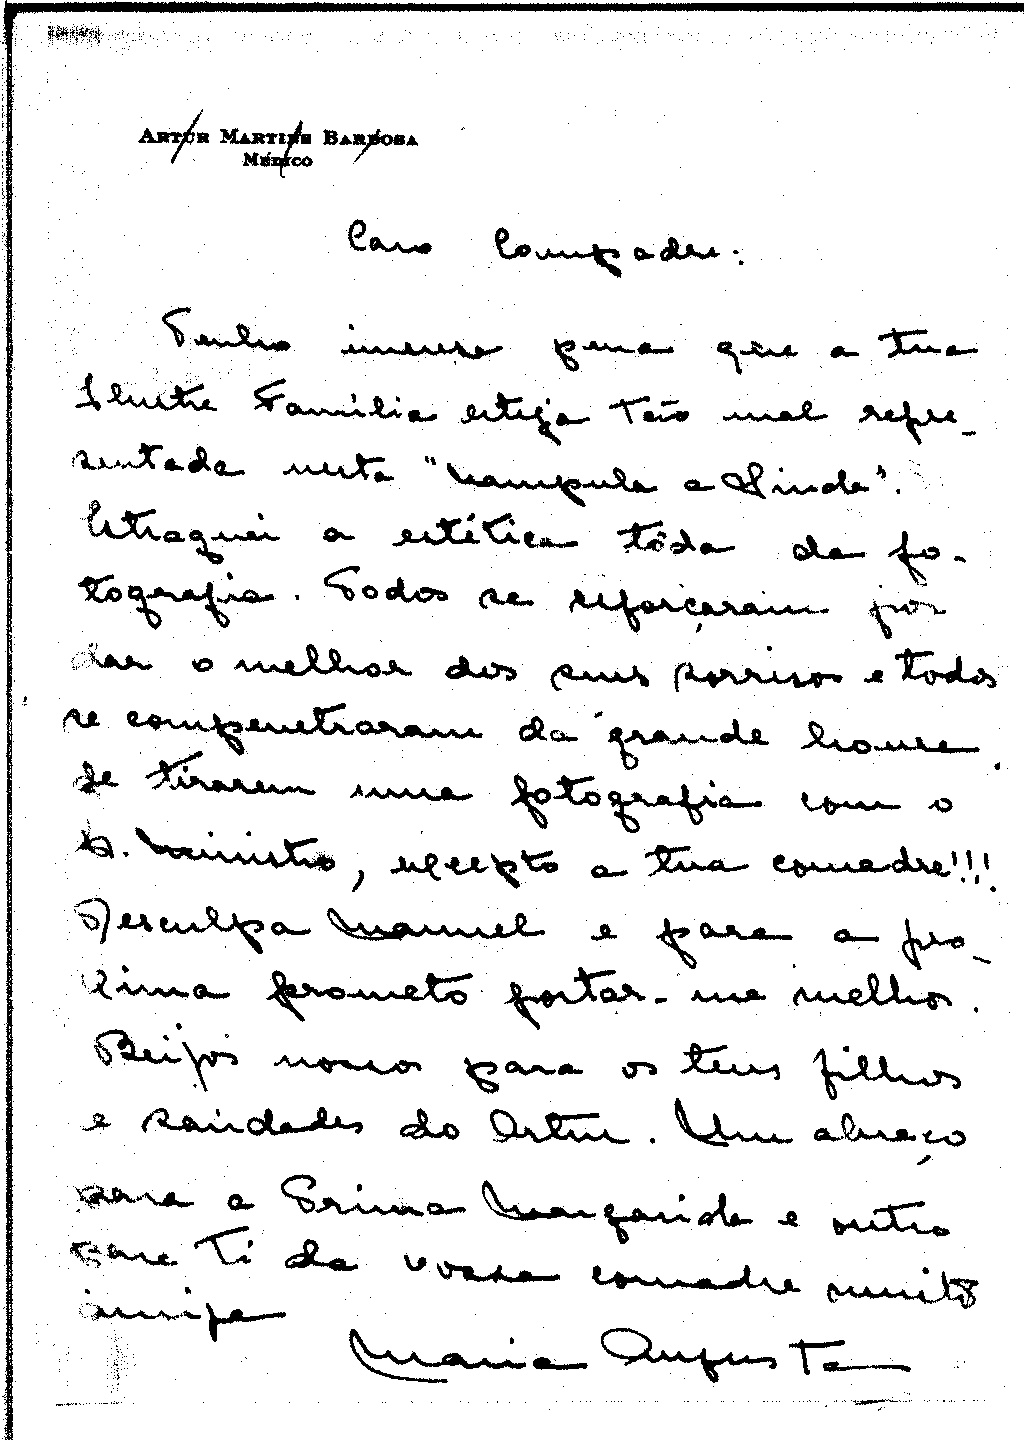 ARTUR MARTINS BARBOSA
MÉDICO
Caro Compadre:
Tenho imensa pena que a tua
Ilustre Família esteja tão mal repre-
sentada nesta "Nampula a Linda".
Estraguei a estética tôda da fo-
tografia. Todos se reforçaram por
dar o melhor dos seus sorrisos e todos
se compenetraram da grande honra
de tirarem uma fotografia com o
S. Ministro, excepto a tua comadre!!!
Desculpa Manuel e para a pro-
xima prometo portar-me melhor.
Beijos nossos para os teus filhos
e saudades do Artur. Um abraço
para a Prima Margarida e outro
para Ti da vossa comadre muito
amiga
Maria Augusta